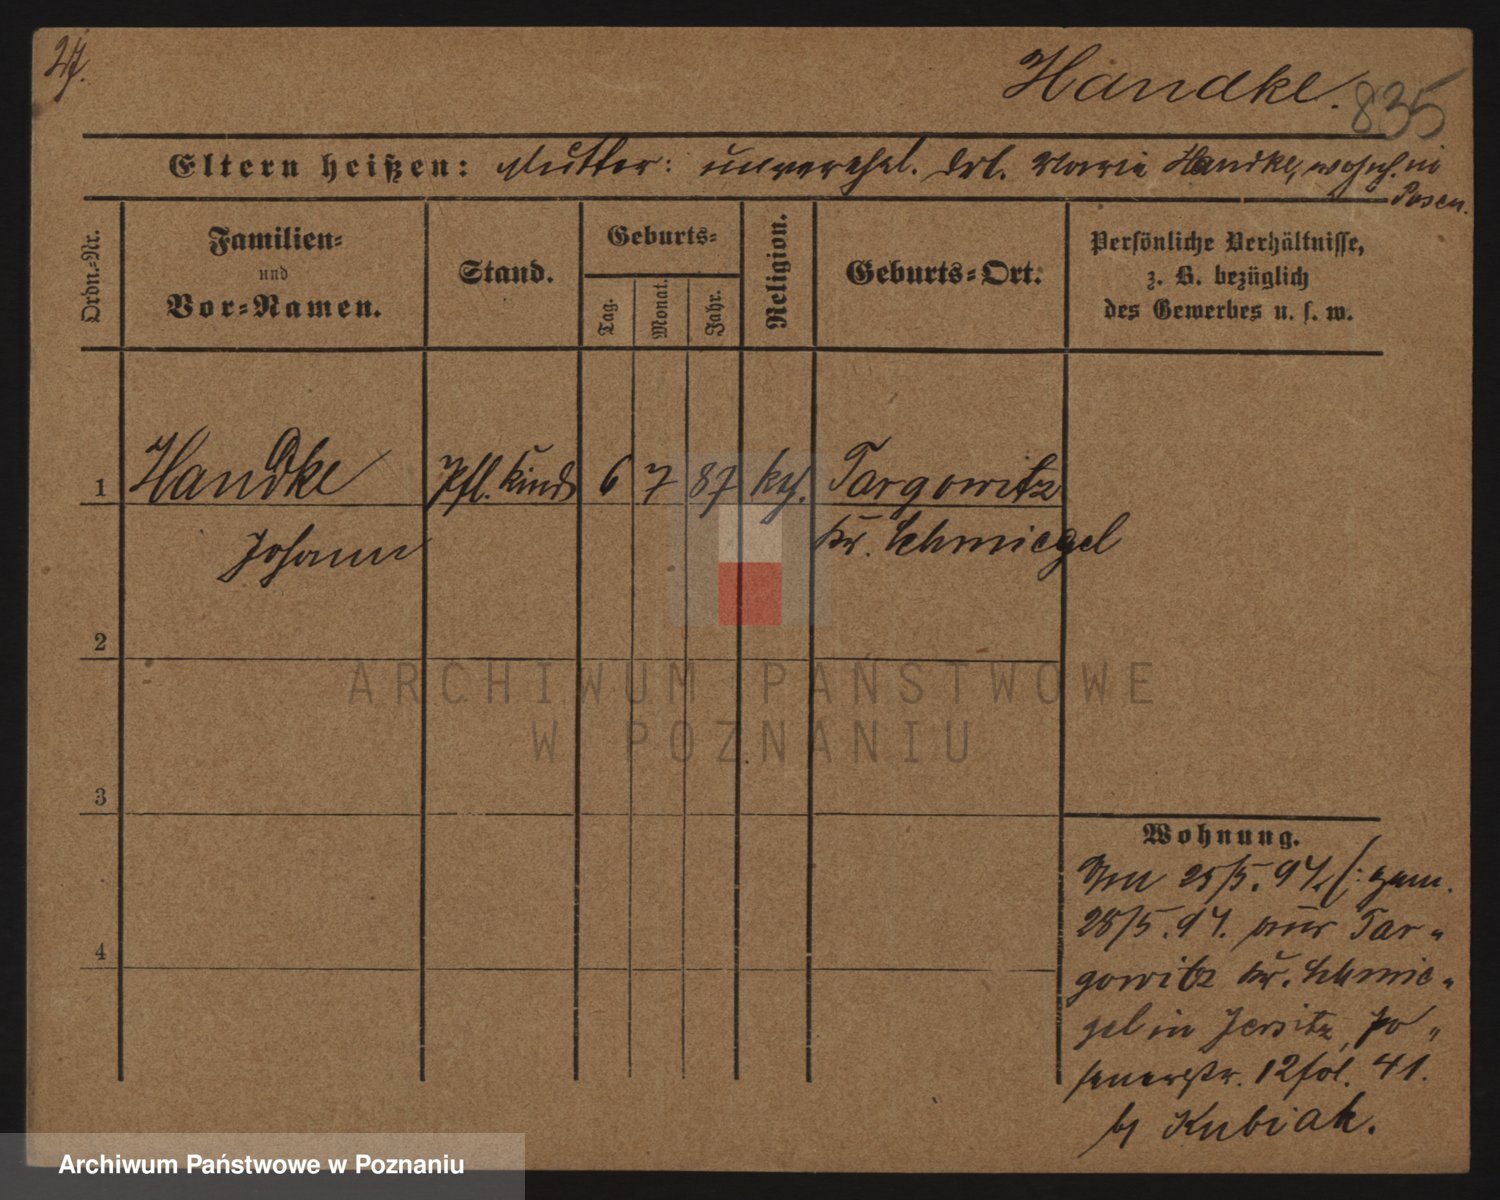 27.
Handke. 835
Eltern heißen: Mutter: unverehel. Marie Handke, wohnh. in
Posen.
Ordn.-Nr.
Familien-
und
Vor-Namen.
Stand.
Geburts-
Tag.
Monat.
Jahr.
Religion.
Geburts-Ort.
Persönliche Verhältnisse,
z. B. bezüglich
des Gewerbes u. s. w.
1 Handke Pfl. Kind 6 7 87 kath. Targowitz
Johann Kr. Schmiegel
2
3
4
Wohnung.
Am 25/5. 94 (: gem.
28/5. 94. aus Tar-
gowitz Kr. Schmie-
gel in Jersitz, Po-
senerstr. 12 fol. 41.
bei Kubiak.
ARCHIWUM PAŃSTWOWE
W POZNANIU
Archiwum Państwowe w Poznaniu